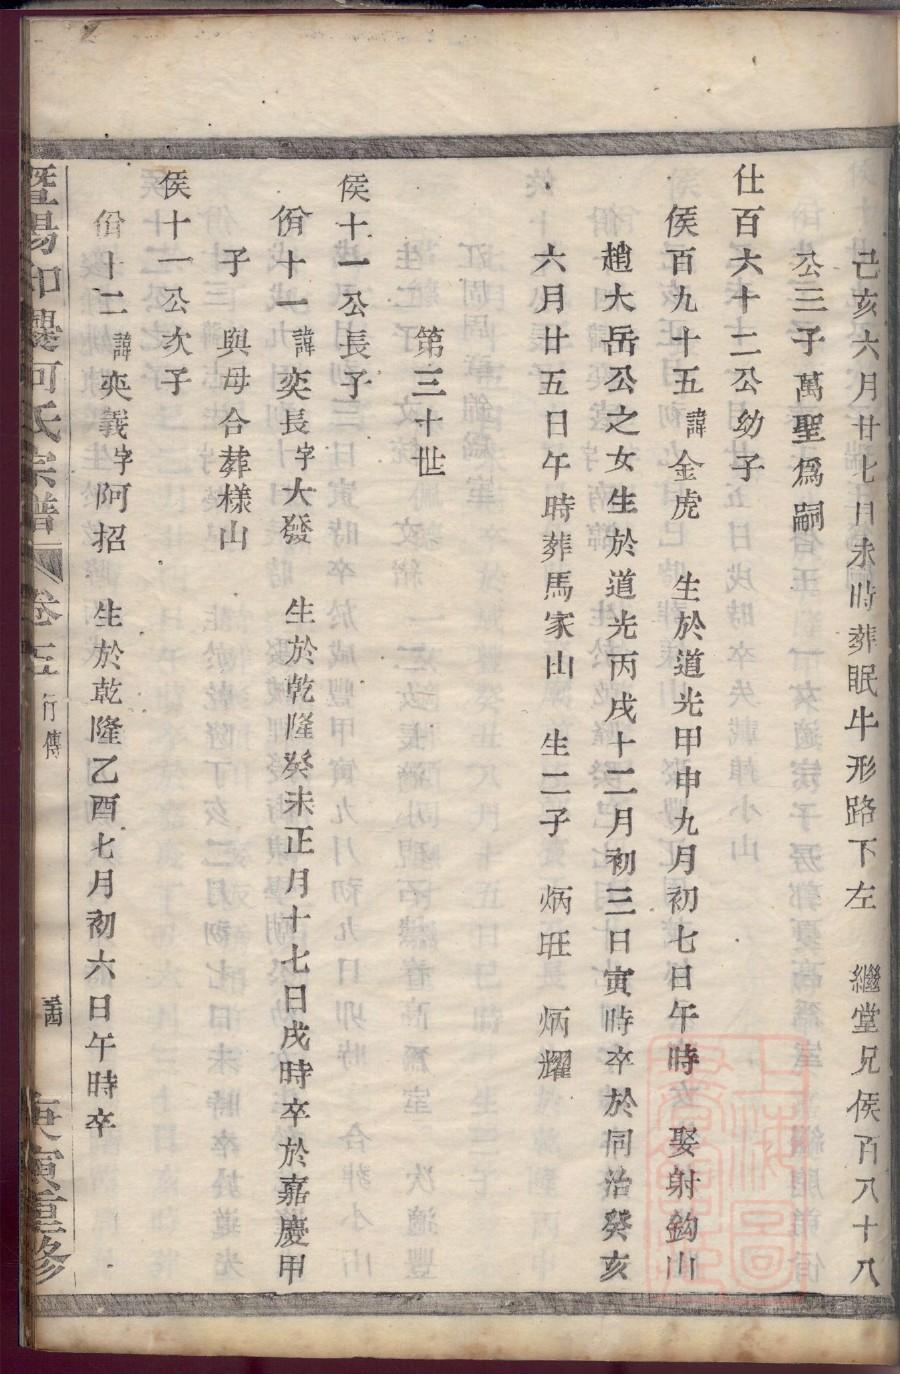 己亥六月廿七日未時葬眠牛形路下左　繼堂兄侯百八十八
公三子萬聖爲嗣
仕百六十二公幼子
侯百九十五諱金虎　生於道光甲申九月初七日午時　娶射鈎山
趙大岳公之女生於道光丙戌十二月初三日寅時卒於同治癸亥
六月廿五日午時葬馬家山　生二子　炳旺　炳耀
第三十世
侯十一公長子
佾十一諱奕長字大發　生於乾隆癸未正月十七日戌時卒於嘉慶甲
子　與母合葬樣山
侯十一公次子
佾十二諱奕義字阿招　生於乾隆乙酉七月初六日午時卒
暨陽 何氏宗譜　卷 行傳　庚寅重修